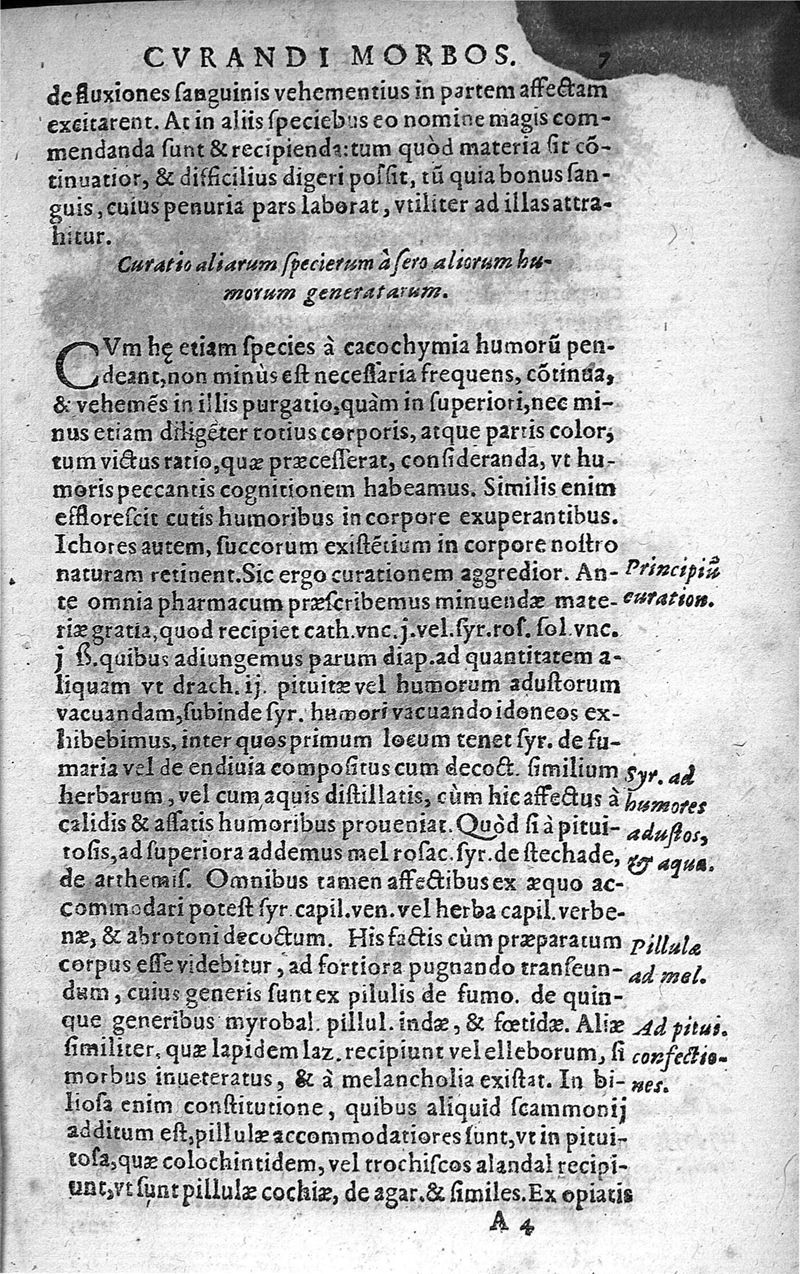 CVRANDI MORBOS. 7
de fluxiones ſanguinis vehementius in partem affectam
excitarent. At in aliis ſpeciebus eo nomine magis com-
mendanda ſunt & recipienda: tum quòd materia ſit cõ-
tinuatior, & difficilius digeri poſſit, tũ quia bonus ſan-
guis, cuius penuria pars laborat, vtiliter ad illas attra-
hitur.
Curatio aliarum ſpecierum à ſero aliorum hu-
morum generatarum.
CVm hę etiam ſpecies à cacochymia humorũ pen-
deant, non minùs eſt neceſſaria frequens, cõtinua,
& vehemẽs in illis purgatio, quàm in ſuperiori, nec mi-
nus etiam diligẽter totius corporis, atque partis color,
tum victus ratio, quæ præceſſerat, conſideranda, vt hu-
moris peccantis cognitionem habeamus. Similis enim
effloreſcit cutis humoribus in corpore exuperantibus.
Ichores autem, ſuccorum exiſtẽtium in corpore noſtro
naturam retinent. Sic ergo curationem aggredior. An-
te omnia pharmacum præſcribemus minuendæ mate-
riæ gratia, quod recipiet cath. vnc. j. vel. ſyr. roſ. ſol. vnc.
j ß. quibus adiungemus parum diap. ad quantitatem a-
liquam vt drach. ij. pituitæ vel humorum aduſtorum
vacuandam, ſubinde ſyr. humori vacuando idoneos ex-
hibebimus, inter quos primum locum tenet ſyr. de fu-
maria vel de endiuia compoſitus cum decoct. ſimilium
herbarum, vel cum aquis diſtillatis, cùm hic affectus à
calidis & aſſatis humoribus proueniat. Quòd ſi à pitui-
toſis, ad ſuperiora addemus mel roſac. ſyr. de ſtechade,
de arthemiſ. Omnibus tamen affectibus ex æquo ac-
commodari poteſt ſyr. capil. ven. vel herba capil. verbe-
næ, & abrotoni decoctum. His factis cùm præparatum
corpus eſſe videbitur, ad fortiora pugnando tranſeun-
dum, cuius generis ſunt ex pilulis de fumo. de quin-
que generibus myrobal. pillul. indæ, & fœtidæ. Aliæ
ſimiliter, quæ lapidem laz. recipiunt vel elleborum, ſi
morbus inueteratus, & à melancholia exiſtat. In bi-
lioſa enim conſtitutione, quibus aliquid ſcammonij
additum eſt, pillulæ accommodatiores ſunt, vt in pitui-
toſa, quæ colochintidem, vel trochiſcos alandal recipi-
unt, vt ſunt pillulæ cochiæ, de agar. & ſimiles. Ex opiatis
A 4
Principiũ
curation.
Syr. ad
humores
aduſtos,
& aqua.
Pillulæ
ad mel.
Ad pitui.
confectio-
nes.